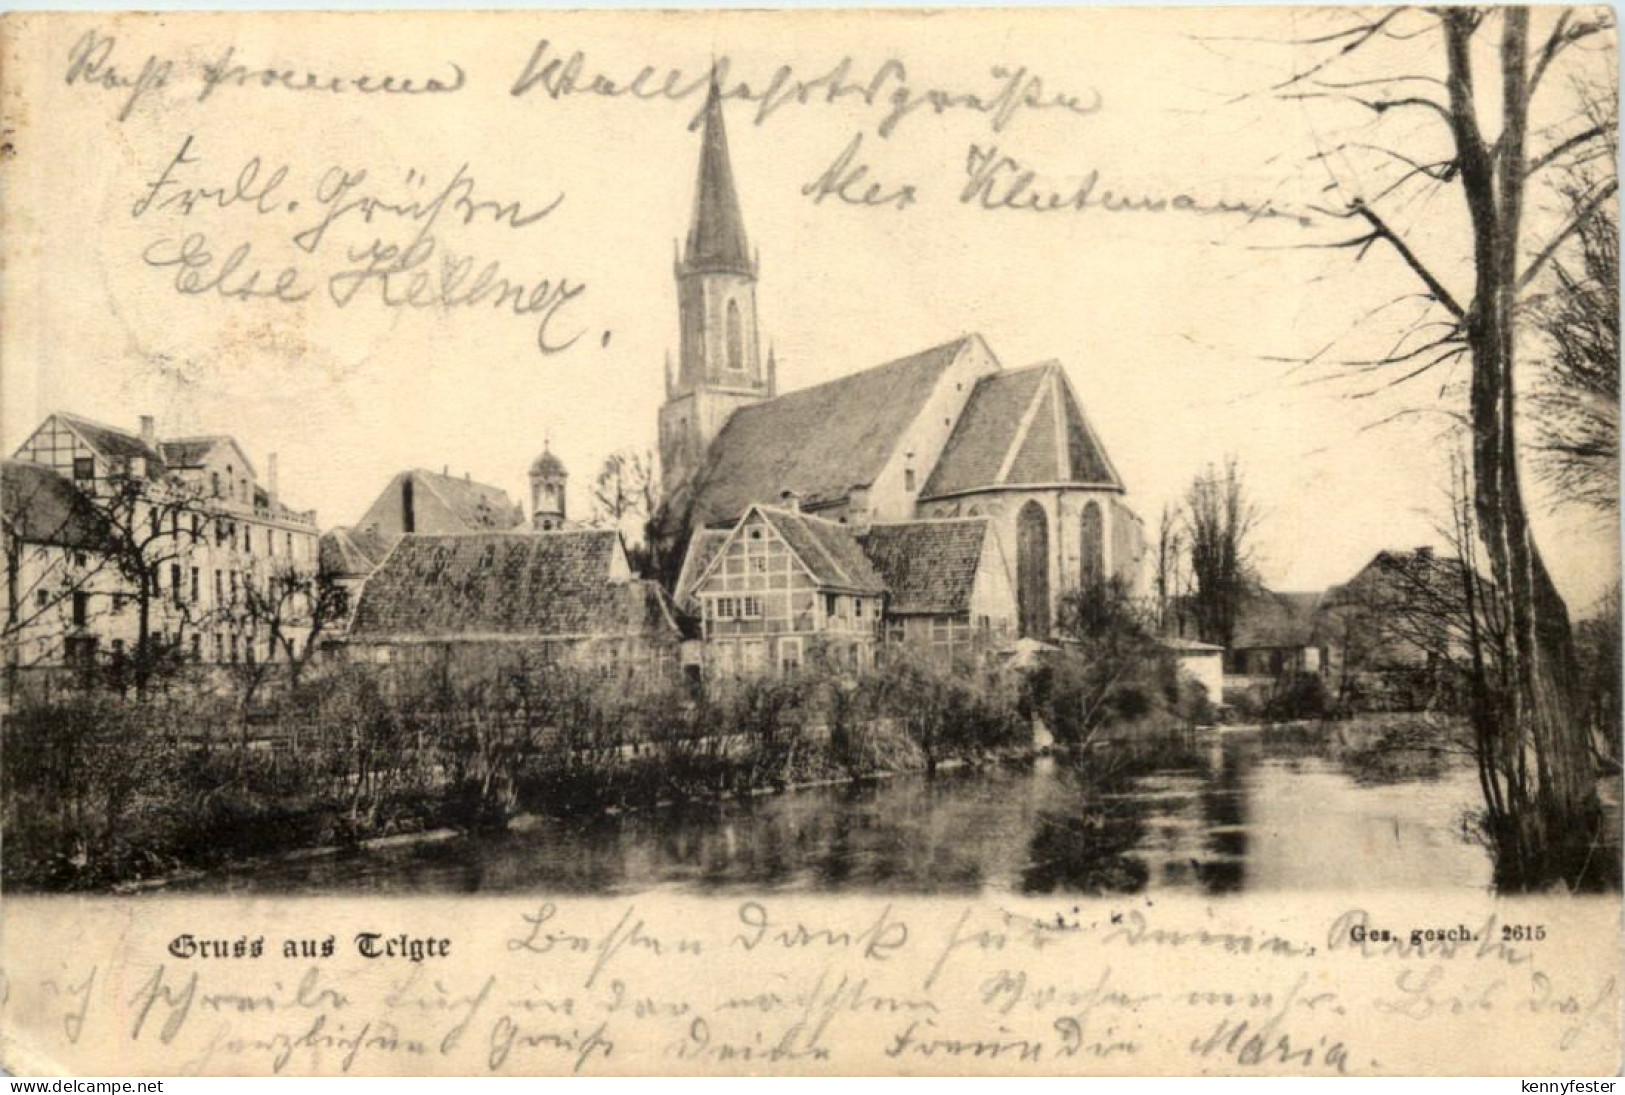 Recht fromme Wallfahrtsgrüße
Alex Klutemann
Frdl. Grüßen
Else Kellner.
Gruss aus Telgte
Ges. gesch. 2615
Besten Dank für deine Karte
ich schreibe Euch in der nächsten Woche mehr. Bis dah
herzlichen Gruß Deine Freundin Maria.
www.delcampe.net
kennyfester